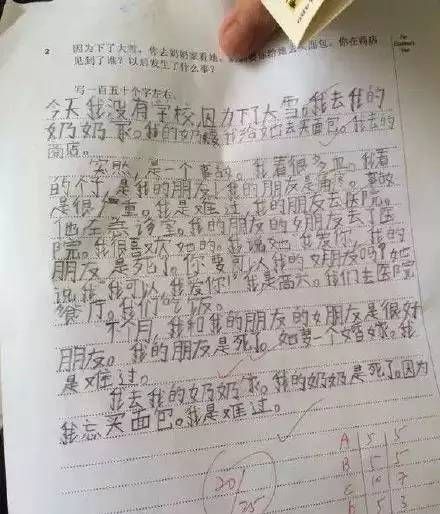 2 因为下了大雪，你去奶奶家看她。给她去买面包。你在商店
见到了谁？以后发生了什么事？
写一百五十个字左右。
今天我没有学校，因为下大雪。我去我的
奶奶家。我的奶奶要我给她去买面包。我去的
商店。
突然，是一个事故。我看很多血。我看
的个子，是我的朋友！我的朋友是角疼。事故
是很严重。我是难过。我的朋友去医院。
他在急诊室。我的朋友的女朋友去了医
院。我很喜欢她的。我说她，我爱你，我的
朋友是死了。你要可以我的女朋友吗？她
说我，我可以，我爱你！我是高兴。我们去医院
餐厅。我们吃饭。
个月，我和我的朋友的女朋友是很好
朋友。我的朋友是死了。如要一个婚嫁。我
是难过。
我去我的奶奶家。我的奶奶是死了。因为
我忘买面包。我是难过。
A 5 5
B 5 5
C 10 7
D 5 3
20/25